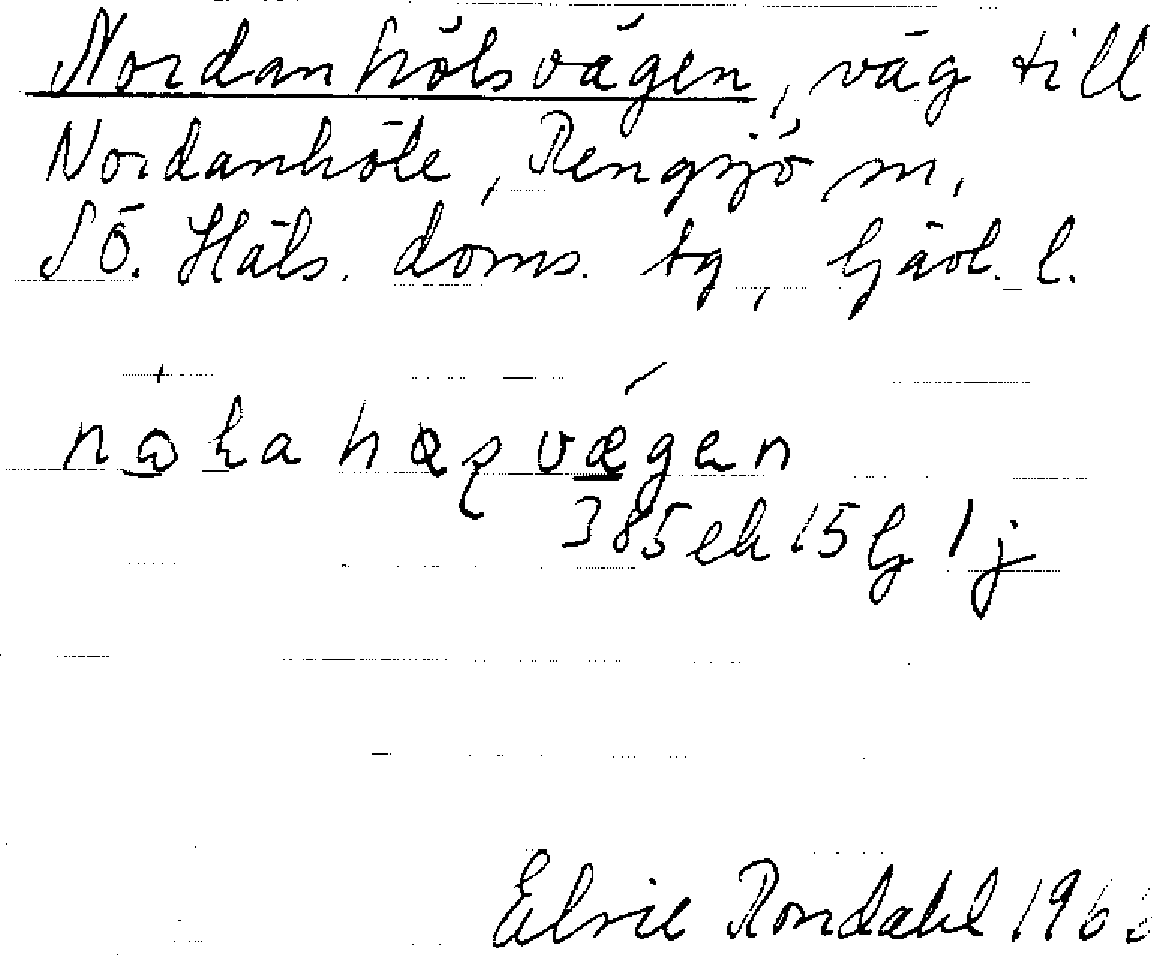 Nordanhölsvägen, väg till
Nordanhöle, Rengsjö sn,
SÖ. Häls. doms. tg, Gävl. l.
vægen
385 eh 15 Gj 1 j
Elsie Rondahl 196